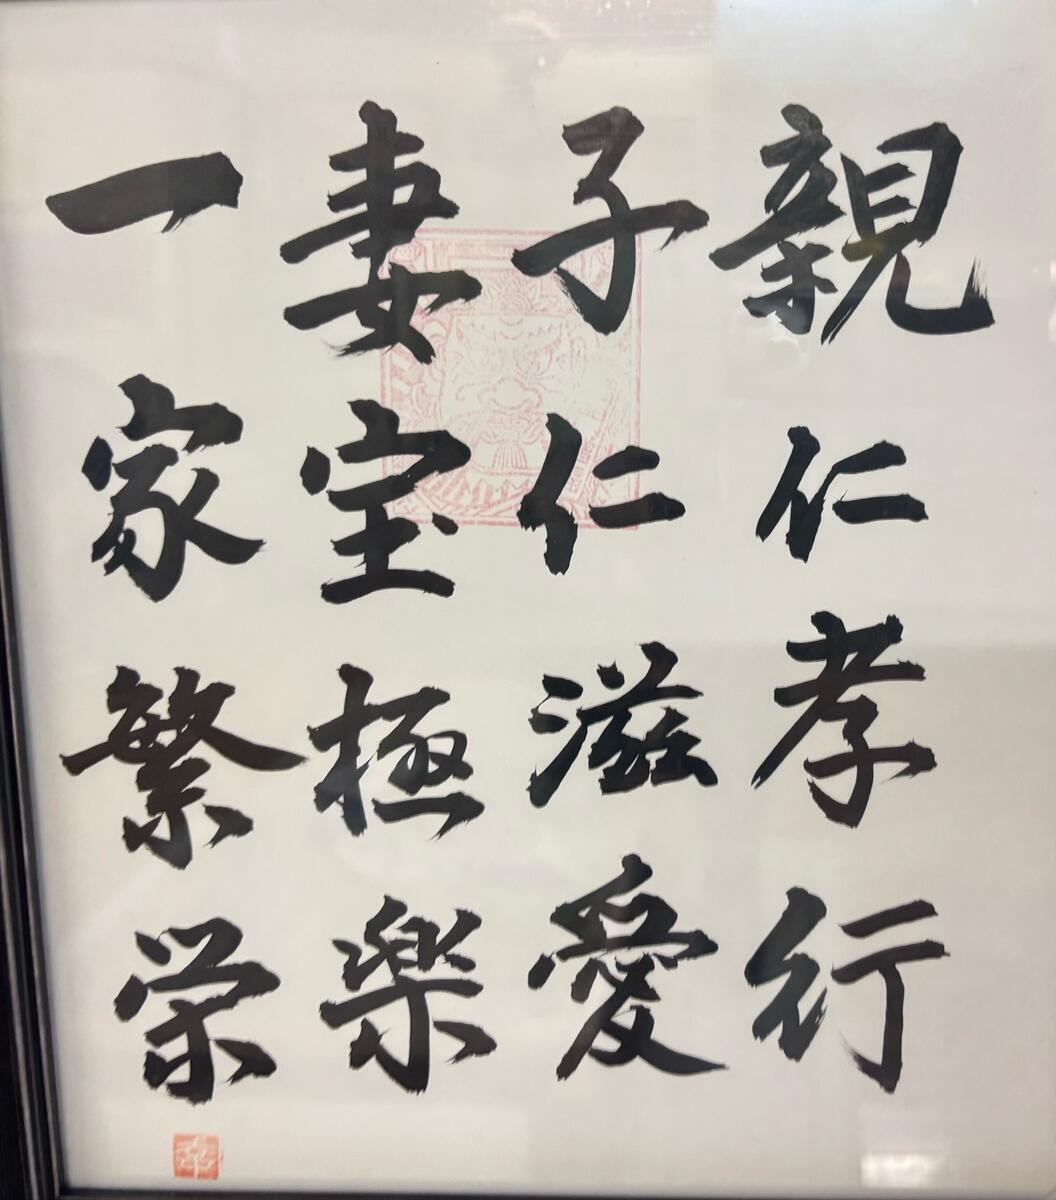 親仁孝行
子仁滋愛
妻宝極楽
一家繁栄